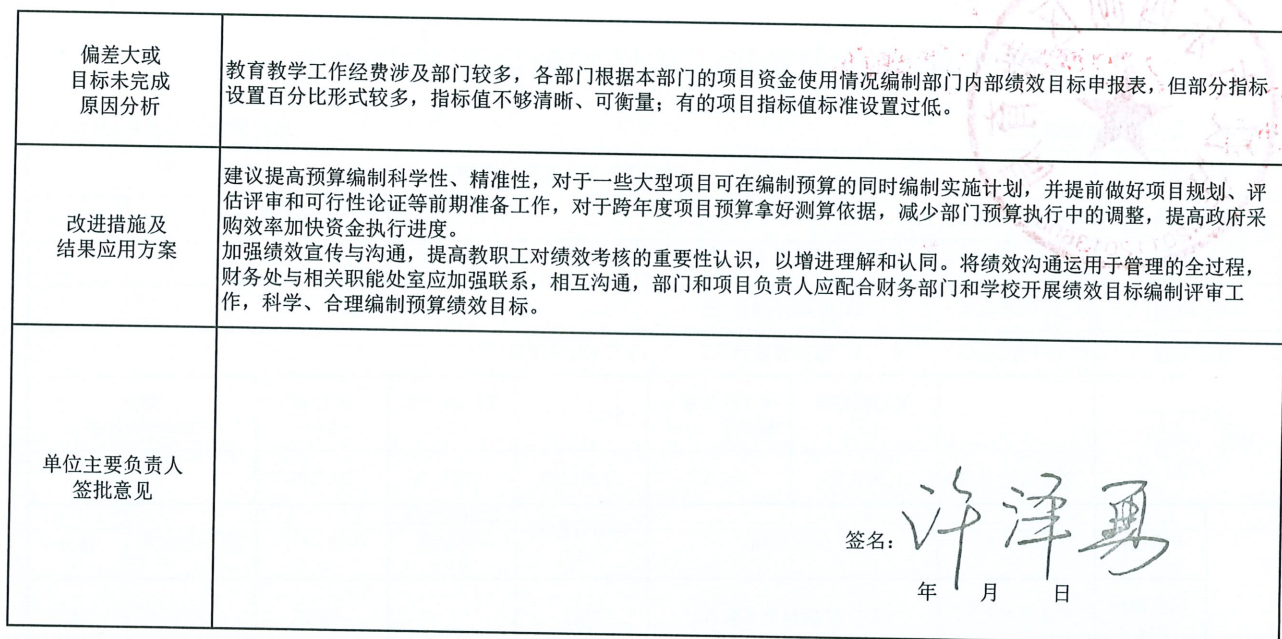 偏差大或
目标未完成
原因分析
教育教学工作经费涉及部门较多，各部门根据本部门的项目资金使用情况编制部门内部绩效目标申报表，但部分指标
设置百分比形式较多，指标值不够清晰、可衡量；有的项目指标值标准设置过低。
改进措施及
结果应用方案
建议提高预算编制科学性、精准性，对于一些大型项目可在编制预算的同时编制实施计划，并提前做好项目规划、评
估评审和可行性论证等前期准备工作，对于跨年度项目预算拿好测算依据，减少部门预算执行中的调整，提高政府采
购效率加快资金执行进度。
加强绩效宣传与沟通，提高教职工对绩效考核的重要性认识，以增进理解和认同。将绩效沟通运用于管理的全过程，
财务处与相关职能处室应加强联系，相互沟通，部门和项目负责人应配合财务部门和学校开展绩效目标编制评审工
作，科学、合理编制预算绩效目标。
单位主要负责人
签批意见
签名：许泽
年 月 日